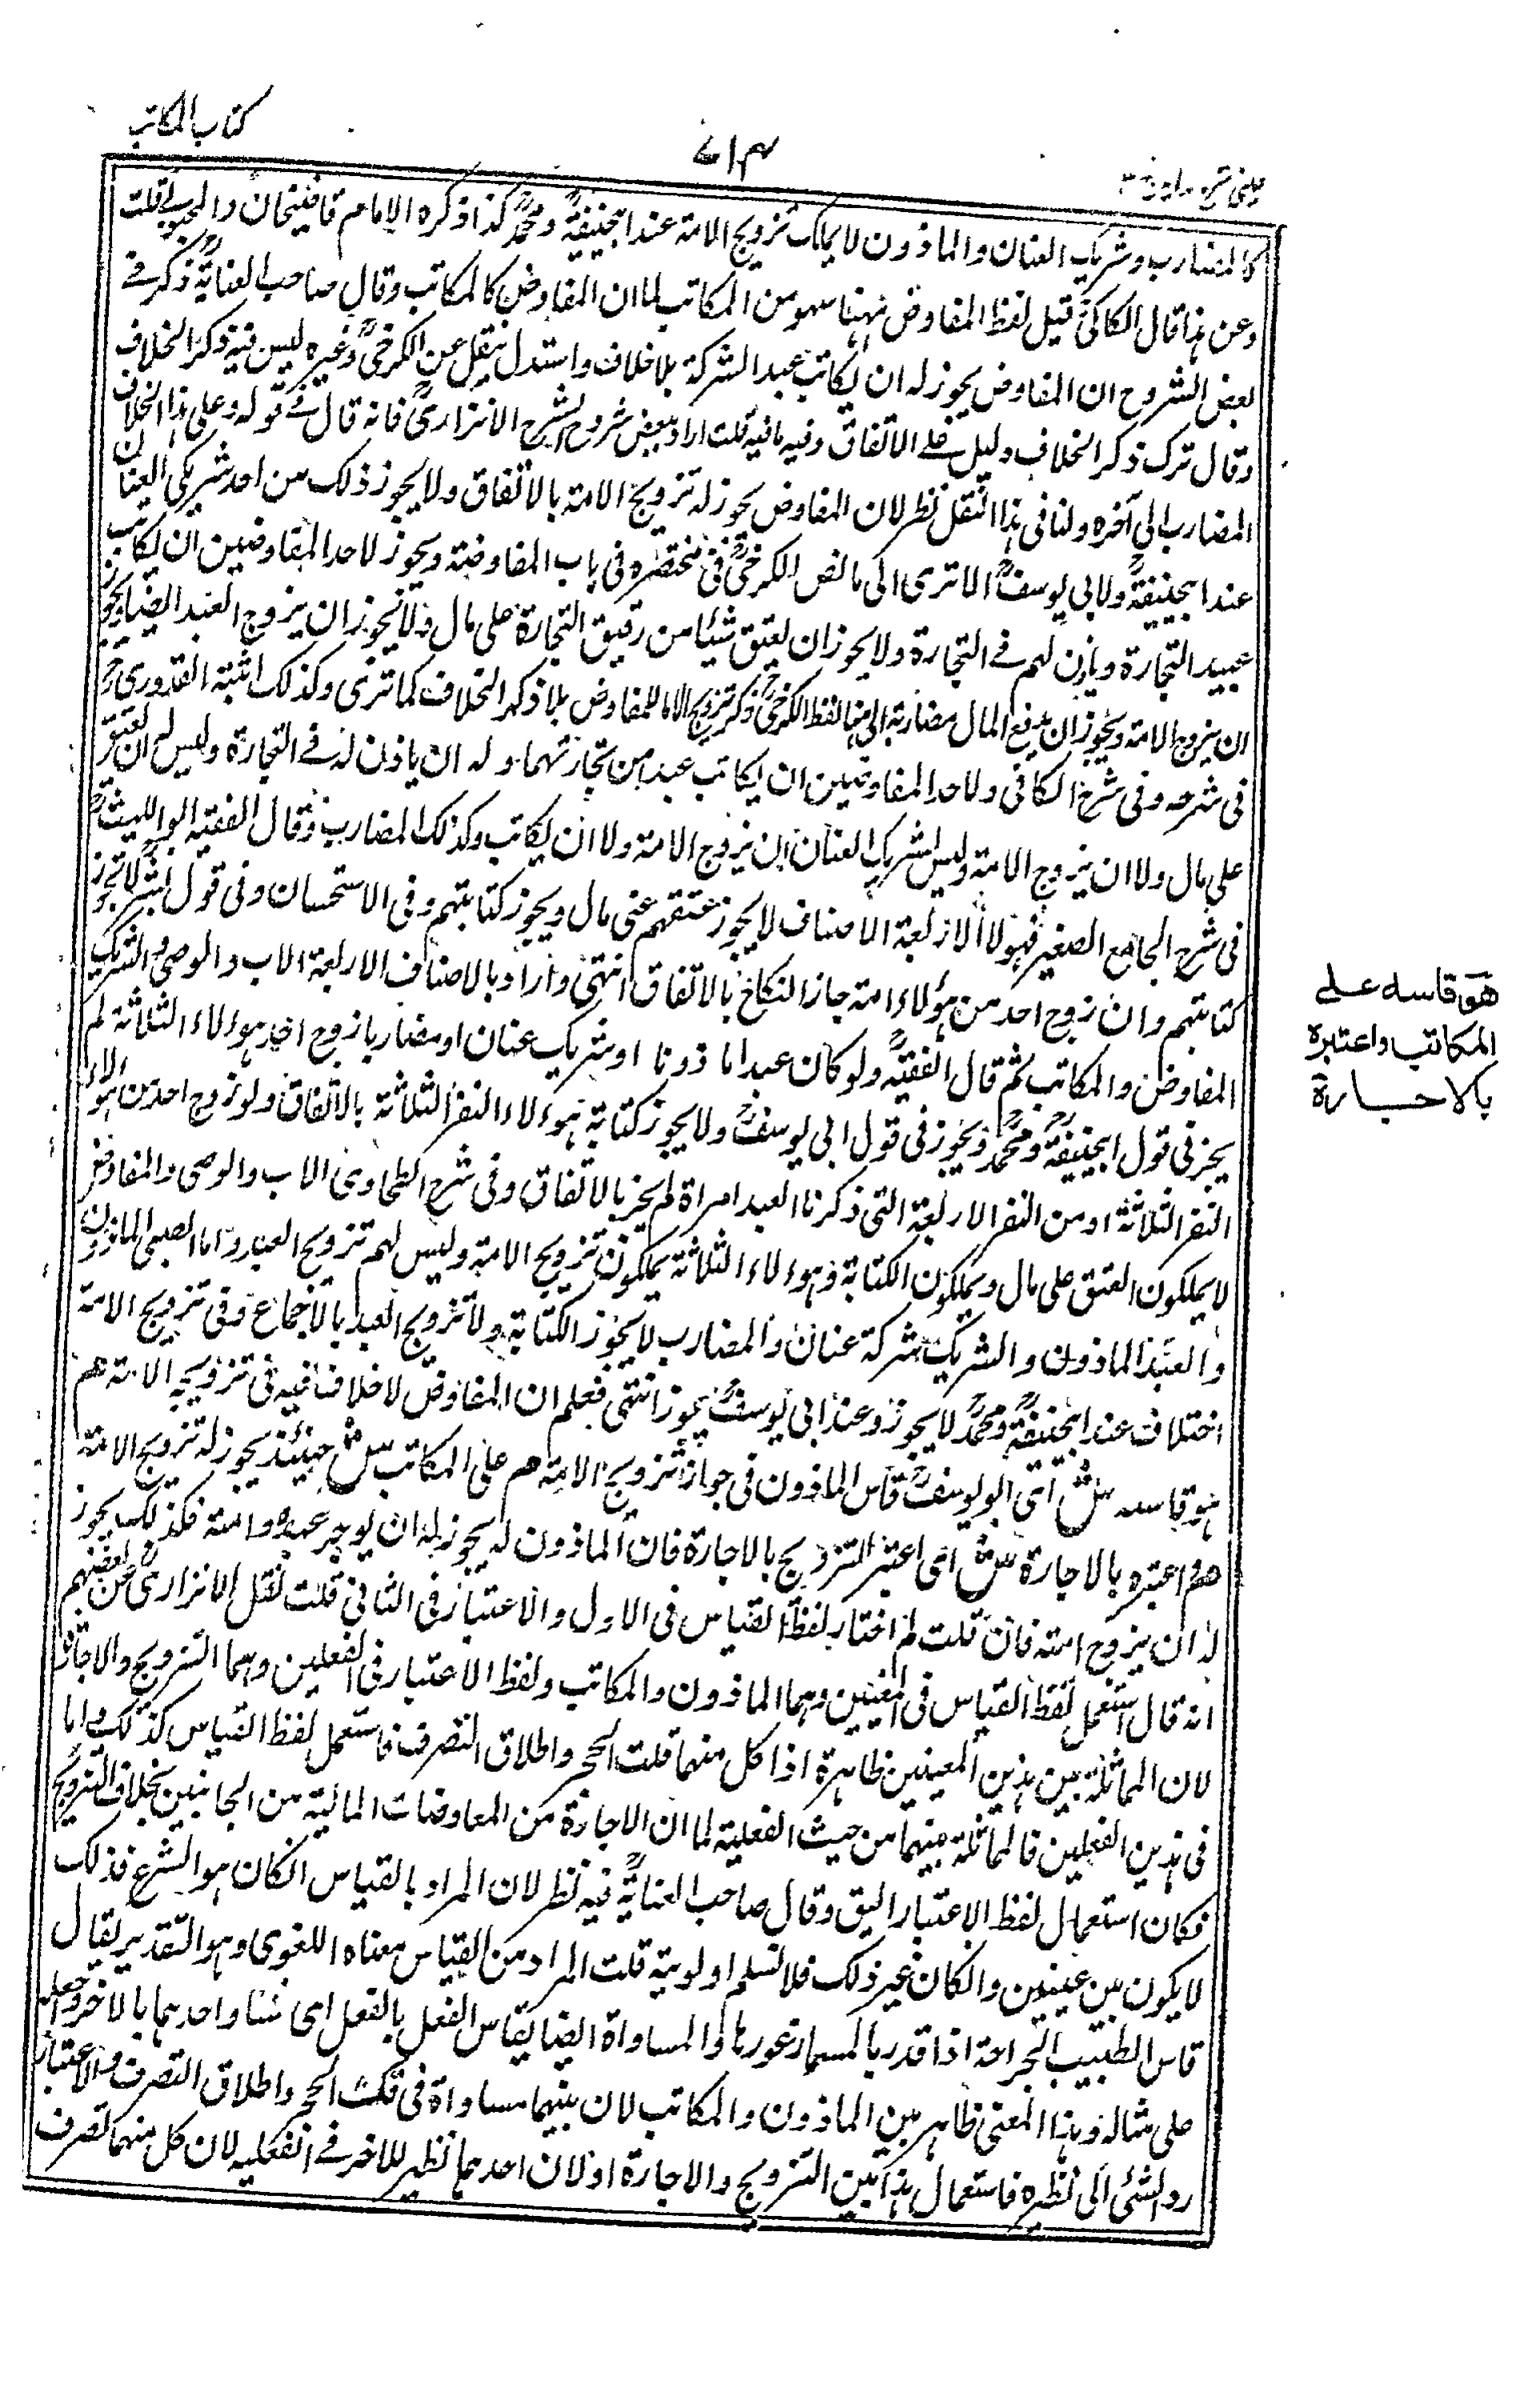 كتاب المكاتب
٧١٣
عينى شرح هداية ج ٣
كالمضارب وشريك العنان والماذون لا يملك تزويج الامة عند ابيحنيفةؒ ومحمدؒ كذا ذكره الامام قاضيخان والمحبوبى قلت
وعن هذا قال الكاكىؒ قيل لفظ المفاوض ههنا سهو من المكاتب لما ان المفاوض كالمكاتب وقال صاحب العنايةؒ ذكر فى
بعض الشروح ان المفاوض يجوز له ان يكاتب عبد الشركة بلا خلاف واستدل بنقل عن الكرخىؒ وغيره ليس فيه ذكر الخلاف
وقال ترك ذكر الخلاف دليل على الاتفاق وفيه ما فيه قلت اراد ببعض شروح الشرح الاتزارىؒ فانه قال فى قوله وعلى هذا الخلاف
المضارب الى آخره ولنا فى هذا النقل نظر لان المفاوض يجوز له تزويج الامة بالاتفاق ولا يجوز ذلك من احد شريكى العنان
عند ابيحنيفةؒ ولابى يوسفؒ الا ترى الى ما نص الكرخىؒ فى مختصره فى باب المفاوضة ويجوز لاحد المفاوضين ان يكاتب
عبيد التجارة وياذن لهم فى التجارة ولا يجوز ان يعتق شيئا من رقيق التجارة على مال ولا يجوز ان يزوج العبد ايضا ويجوز
ان يزوج الامة ويجوز ان يدفع المال مضاربة الى هنا لفظ الكرخىؒ ذكر تزويج الاماء للمفاوض بلا ذكر الخلاف كما ترى وكذلك اثبته القدورىؒ
فى شرحه وفى شرح الكافى ولاحد المفاوضين ان يكاتب عبدا من تجارتهما وله ان ياذن له فى التجارة وليس له ان يعتق
على مال ولا ان يزوج الامة وليس لشريك العنان ان يزوج الامة ولا ان يكاتب وكذلك المضارب وقال الفقيه ابو الليثؒ
فى شرح الجامع الصغير فهؤلاء الاربعة الاصناف لا يجوز عتقهم على مال ويجوز كتابتهم وفى الاستحسان وفى قول بشرؒ لا تجوز
كتابتهم وان زوج احد من هؤلاء امة جاز النكاح بالاتفاق انتهى واراد بالاصناف الاربعة الاب والوصى والشريك
المفاوض والمكاتب ثم قال الفقيهؒ ولو كان عبدا ماذونا او شريك عنان او مضاربا زوج احد هؤلاء الثلاثة لم
يجز فى قول ابيحنيفةؒ ومحمدؒ ويجوز فى قول ابى يوسفؒ ولا يجوز كتابة هؤلاء النفر الثلاثة بالاتفاق ولو زوج احد من هؤلاء
النفر الثلاثة او من النفر الاربعة التى ذكرنا العبد امراة لم يجز بالاتفاق وفى شرح الطحاوى الاب والوصى والمفاوض
لا يملكون العتق على مال ويملكون الكتابة وهؤلاء الثلاثة يملكون تزويج الامة وليس لهم تزويج العبد واما الصبى الماذون
والعبد الماذون والشريك شركة عنان والمضارب لا يجوز الكتابة ولا تزويج العبد بالاجماع وفى تزويج الامة
اختلاف عند ابيحنيفةؒ ومحمدؒ لا يجوز وعند ابى يوسفؒ يجوز انتهى فعلم ان المفاوض لا خلاف فيه فى تزويجه الامة هم
هو قاسه ش اى ابو يوسفؒ قاس الماذون فى جواز تزويج الامة هم على المكاتب ش حينئذ يجوز له تزويج الامة
هم واعتبره بالاجارة ش اى اعتبر التزويج بالاجارة فان الماذون له يجوز له ان يوجر عبده وامته فكذلك يجوز
له ان يزوج امته فان قلت لم اختار لفظ القياس فى الاول والاعتبار فى الثانى قلت نقل الاتزارىؒ عن بعضهم
انه قال استعمل لفظ القياس فى العينين وهما الماذون والمكاتب ولفظ الاعتبار فى الفعلين وهما التزويج والاجارة
لان المماثلة بين هذين العينين ظاهرة اذا كل منهما فك الحجر واطلاق التصرف فاستعمل لفظ القياس كذلك واما
فى هذين الفعلين فالمماثلة بينهما من حيث الفعلية لما ان الاجارة من المعاوضات المالية من الجانبين بخلاف التزويج
فكان استعمال لفظ الاعتبار اليق وقال صاحب العنايةؒ فيه نظر لان المراد بالقياس ان كان هو الشرع فذلك
لا يكون بين عينين وان كان غير ذلك فلا نسلم اولويته قلت المراد من القياس معناه اللغوى وهو التقدير يقال
قاس الطبيب الجراحة اذا قدر بالمسمار غورها والمساواة ايضا يقاس الفعل بالفعل اى شنا واحدهما بالاخر وجعله
على مثاله وهذا المعنى ظاهر بين الماذون والمكاتب لان بينهما مساواة فى فك الحجر واطلاق التصرف والاعتبار
رد الشئ الى نظيره فاستعمال هذا بين التزويج والاجارة اولان احدهما نظير للاخر فى الفعلية لان كل منهما تصرف
هو قاسه على
المكاتب واعتبره
بالاجارة